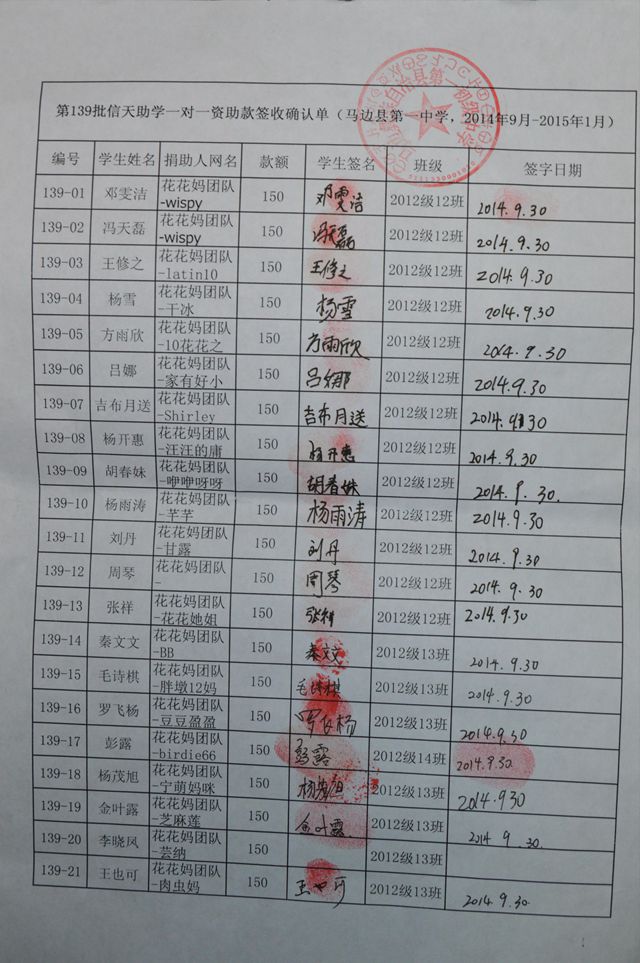 第139批信天助学一对一资助款签收确认单（马边县第一中学，2014年9月-2015年1月）
编号 学生姓名 捐助人网名 款额 学生签名 班级 签字日期
139-01 邓雯洁 花花妈团队-wispy 150 邓雯洁 2012级12班 2014.9.30
139-02 冯天磊 花花妈团队-wispy 150 冯天磊 2012级12班 2014.9.30
139-03 王修之 花花妈团队-latin10 150 王修之 2012级12班 2014.9.30
139-04 杨雪 花花妈团队-干冰 150 杨雪 2012级12班 2014.9.30
139-05 方雨欣 花花妈团队-10花花之 150 方雨欣 2012级12班 2014.9.30
139-06 吕娜 花花妈团队-家有好小 150 吕娜 2012级12班 2014.9.30
139-07 吉布月送 花花妈团队-Shirley 150 吉布月送 2012级12班 2014.9.30
139-08 杨开惠 花花妈团队-汪汪的庸 150 杨开惠 2012级12班 2014.9.30
139-09 胡春妹 花花妈团队-咿咿呀呀 150 胡春妹 2012级12班 2014.9.30
139-10 杨雨涛 花花妈团队-芊芊 150 杨雨清 2012级12班 2014.9.30
139-11 刘丹 花花妈团队-甘露 150 刘丹 2012级12班 2014.9.30
139-12 周琴 花花妈团队- 150 周琴 2012级12班 2014.9.30
139-13 张祥 花花妈团队-花花她姐 150 张祥 2012级12班 2014.9.30
139-14 秦文文 花花妈团队-BB 150 秦文文 2012级13班 2014.9.30
139-15 毛诗棋 花花妈团队-胖墩12妈 150 毛诗棋 2012级13班 2014.9.30
139-16 罗飞杨 花花妈团队-豆豆盈盈 150 罗飞杨 2012级13班 2014.9.30
139-17 彭露 花花妈团队-birdie66 150 彭露 2012级14班 2014.9.30
139-18 杨茂旭 花花妈团队-宁萌妈咪 150 杨茂旭 2012级13班 2014.9.30
139-19 金叶露 花花妈团队-芝麻莲 150 金叶露 2012级13班 2014.9.30
139-20 李晓凤 花花妈团队-芸纳 150 2012级13班
139-21 王也可 花花妈团队-肉虫妈 150 王也可 2012级13班 2014.9.30